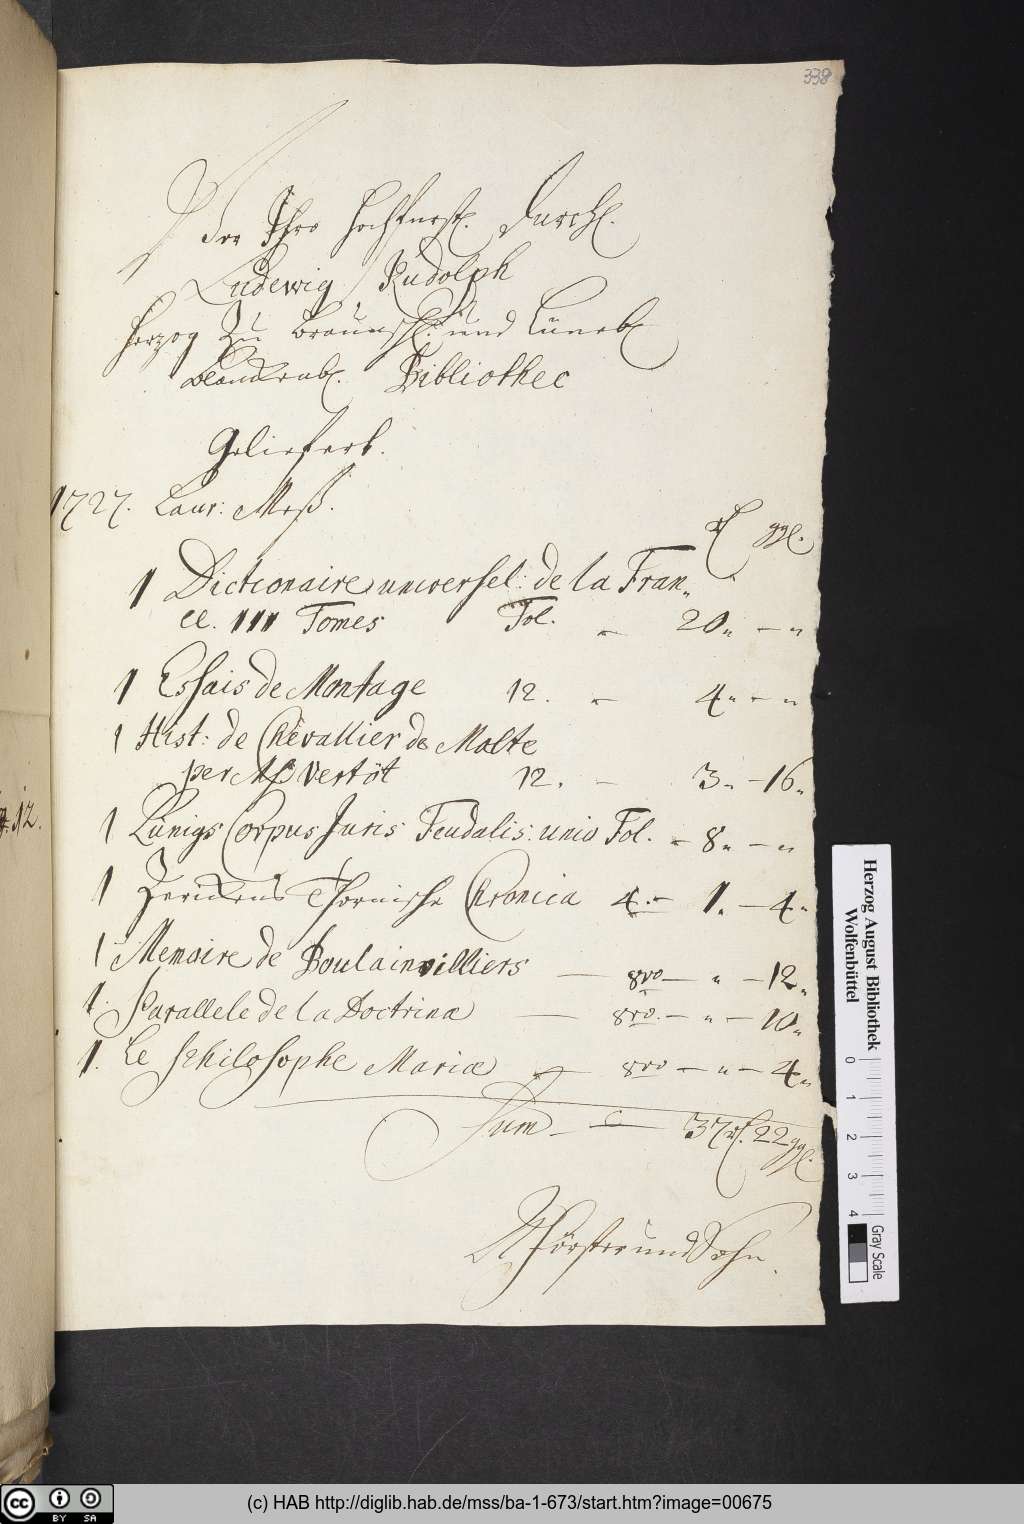 338
Vor Ihro Hochfürstl. Durchl.
Ludewig Rudolph
Herzog Zu Braunschl: und Lüneb
Blanckenb. Bibliothec
Geliefert.
1727. Laur: Meß.
rl ggl.
1 Dictionaire universel: de la Fran„
ce. III Tomes Fol. „ 20„ – „
1 Essais de Montage 12. „ 4„ – „
1 Hist: de Chevallier de Malte
per Mr Vertot 12. – 3„ – 16„
1 Lünigs Corpus Juris Feudalis: unio Fol. – 8„ – „
1 Zerickens Thornische Chronica 4. – 1. – 4„
1 Memoire de Boulainvilliers — 8vo – „ – 12„
1. Parallele de la Doctrinæ — 8vo. – „ – 10„
1. Le Philosophe Mariæ — 8vo – „ – 4„
Sum – — 37 rl. 22 ggl.
Förster und Sohn.
12.
Herzog August Bibliothek
Wolfenbüttel
0 1 2 3 4
Gray Scale
cc BY SA
(c) HAB http://diglib.hab.de/mss/ba-1-673/start.htm?image=00675